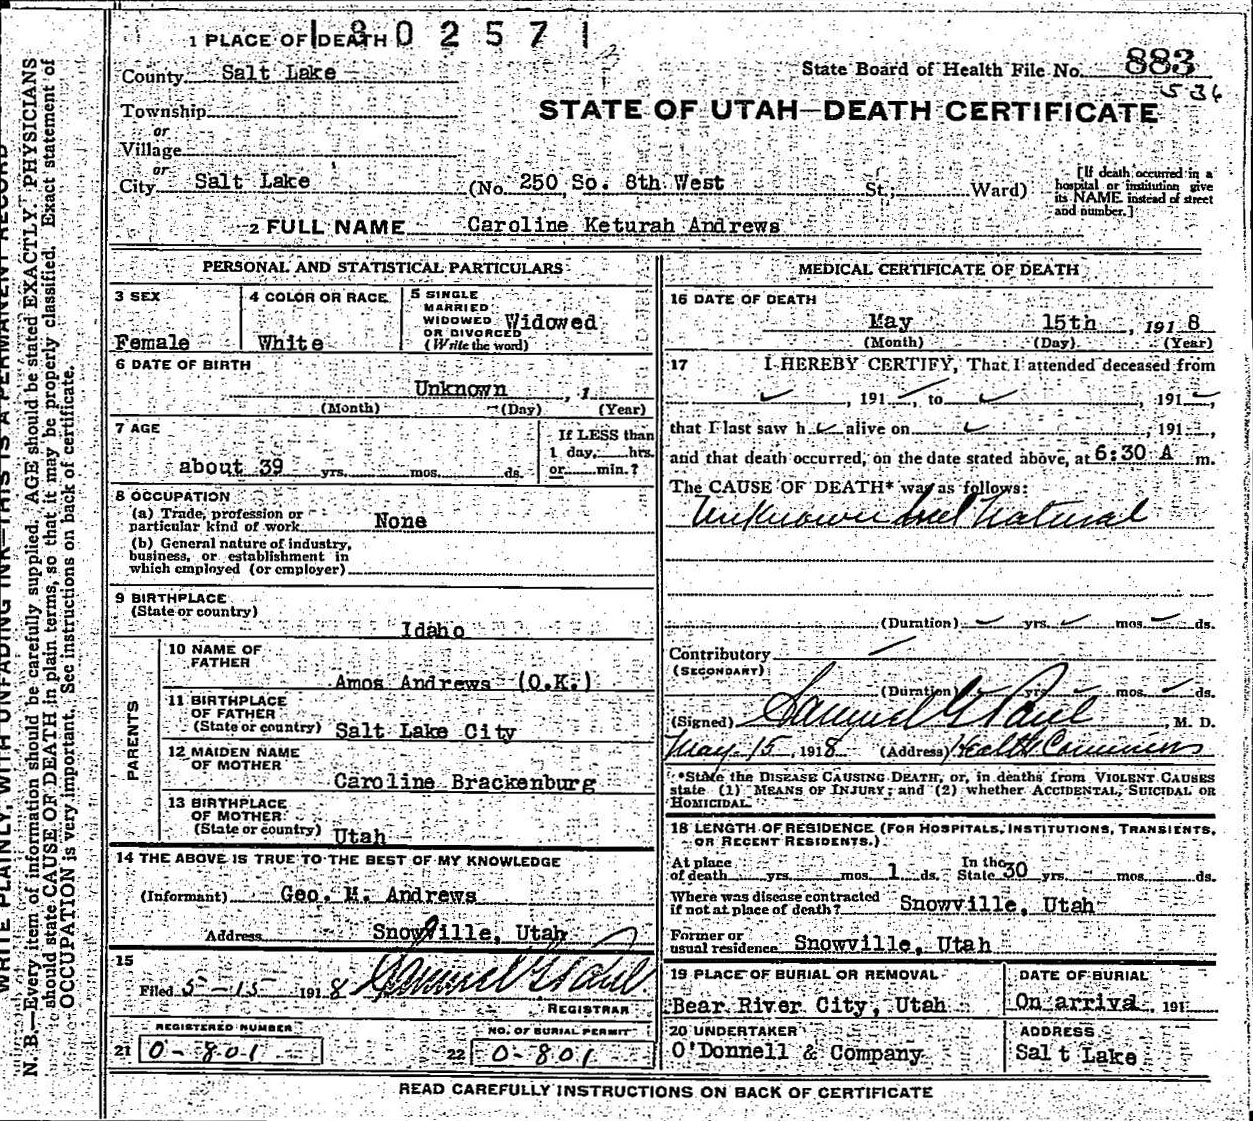 1 PLACE OF DEATH 1 8 0 2 5 7 1
County Salt Lake
State Board of Health File No. 883
536
Township
or
Village
or
City Salt Lake (No. 250 So. 8th West St; Ward)
STATE OF UTAH—DEATH CERTIFICATE
[If death occurred in a
hospital or institution give
its NAME instead of street
and number.]
2 FULL NAME Caroline Keturah Andrews
PERSONAL AND STATISTICAL PARTICULARS
3 SEX
Female
4 COLOR OR RACE
White
5 SINGLE
MARRIED
WIDOWED
OR DIVORCED
(Write the word)
Widowed
6 DATE OF BIRTH
Unknown , 1
(Month) (Day) (Year)
7 AGE
about 39 yrs. mos. ds.
If LESS than
1 day, hrs.
or min.?
8 OCCUPATION
(a) Trade, profession or
particular kind of work None
(b) General nature of industry,
business, or establishment in
which employed (or employer)
9 BIRTHPLACE
(State or country)
Idaho
PARENTS
10 NAME OF
FATHER
Amos Andrews (O.K.)
11 BIRTHPLACE
OF FATHER
(State or country) Salt Lake City
12 MAIDEN NAME
OF MOTHER
Caroline Brackenburg
13 BIRTHPLACE
OF MOTHER
(State or country) Utah
14 THE ABOVE IS TRUE TO THE BEST OF MY KNOWLEDGE
(Informant) Geo. M. Andrews
Address Snowville, Utah
15
Filed 5-15- 1918 Samuel G Paul
REGISTRAR
REGISTERED NUMBER
21 0-801
NO. OF BURIAL PERMIT
22 0-801
MEDICAL CERTIFICATE OF DEATH
16 DATE OF DEATH
May 15th , 191 8
(Month) (Day) (Year)
17 I HEREBY CERTIFY, That I attended deceased from
, 191 , to , 191 ,
that I last saw h alive on , 191 ,
and that death occurred, on the date stated above, at 6:30 A m.
The CAUSE OF DEATH* was as follows:
Unknown but Natural
(Duration) yrs. mos. ds.
Contributory
(SECONDARY)
(Duration) yrs. mos. ds.
(Signed) Samuel G Paul , M. D.
May-15, 1918 (Address) Health Commiss
*State the DISEASE CAUSING DEATH, or, in deaths from VIOLENT CAUSES
state (1) MEANS OF INJURY; and (2) whether ACCIDENTAL, SUICIDAL OR
HOMICIDAL
18 LENGTH OF RESIDENCE (FOR HOSPITALS, INSTITUTIONS, TRANSIENTS,
OR RECENT RESIDENTS.)
At place
of death yrs. mos. 1 ds.
In the
State 30 yrs. mos. ds.
Where was disease contracted
if not at place of death? Snowville, Utah
Former or
usual residence Snowville, Utah
19 PLACE OF BURIAL OR REMOVAL
Bear River City, Utah
DATE OF BURIAL
On arrival , 191
20 UNDERTAKER
O'Donnell & Company
ADDRESS
Salt Lake
READ CAREFULLY INSTRUCTIONS ON BACK OF CERTIFICATE
WRITE PLAINLY, WITH UNFADING INK—THIS IS A PERMANENT RECORD
N. B.—Every item of information should be carefully supplied. AGE should be stated EXACTLY. PHYSICIANS
should state CAUSE OF DEATH in plain terms, so that it may be properly classified. Exact statement of
OCCUPATION is very important. See instructions on back of certificate.